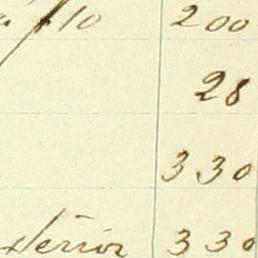 #10 200
28
330
330